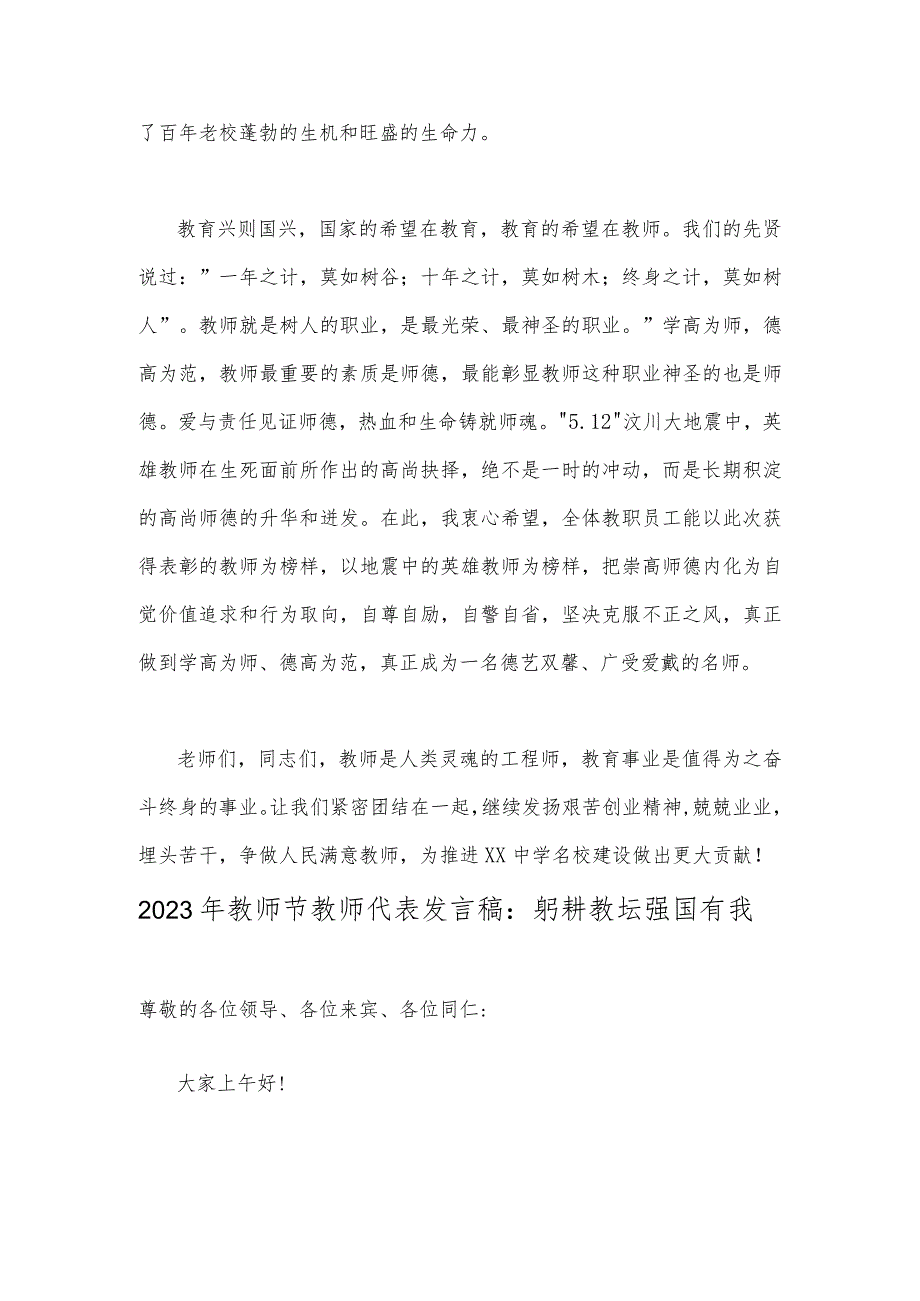 了百年老校蓬勃的生机和旺盛的生命力。
教育兴则国兴，国家的希望在教育，教育的希望在教师。我们的先贤
说过：”一年之计，莫如树谷；十年之计，莫如树木；终身之计，莫如树
人”。教师就是树人的职业，是最光荣、最神圣的职业。”学高为师，德
高为范，教师最重要的素质是师德，最能彰显教师这种职业神圣的也是师
德。爱与责任见证师德，热血和生命铸就师魂。"5.12"汶川大地震中，英
雄教师在生死面前所作出的高尚抉择，绝不是一时的冲动，而是长期积淀
的高尚师德的升华和迸发。在此，我衷心希望，全体教职员工能以此次获
得表彰的教师为榜样，以地震中的英雄教师为榜样，把崇高师德内化为自
觉价值追求和行为取向，自尊自励，自警自省，坚决克服不正之风，真正
做到学高为师、德高为范，真正成为一名德艺双馨、广受爱戴的名师。
老师们，同志们，教师是人类灵魂的工程师，教育事业是值得为之奋
斗终身的事业。让我们紧密团结在一起，继续发扬艰苦创业精神，兢兢业业，
埋头苦干，争做人民满意教师，为推进XX中学名校建设做出更大贡献！
2023年教师节教师代表发言稿：躬耕教坛强国有我
尊敬的各位领导、各位来宾、各位同仁:
大家上午好!